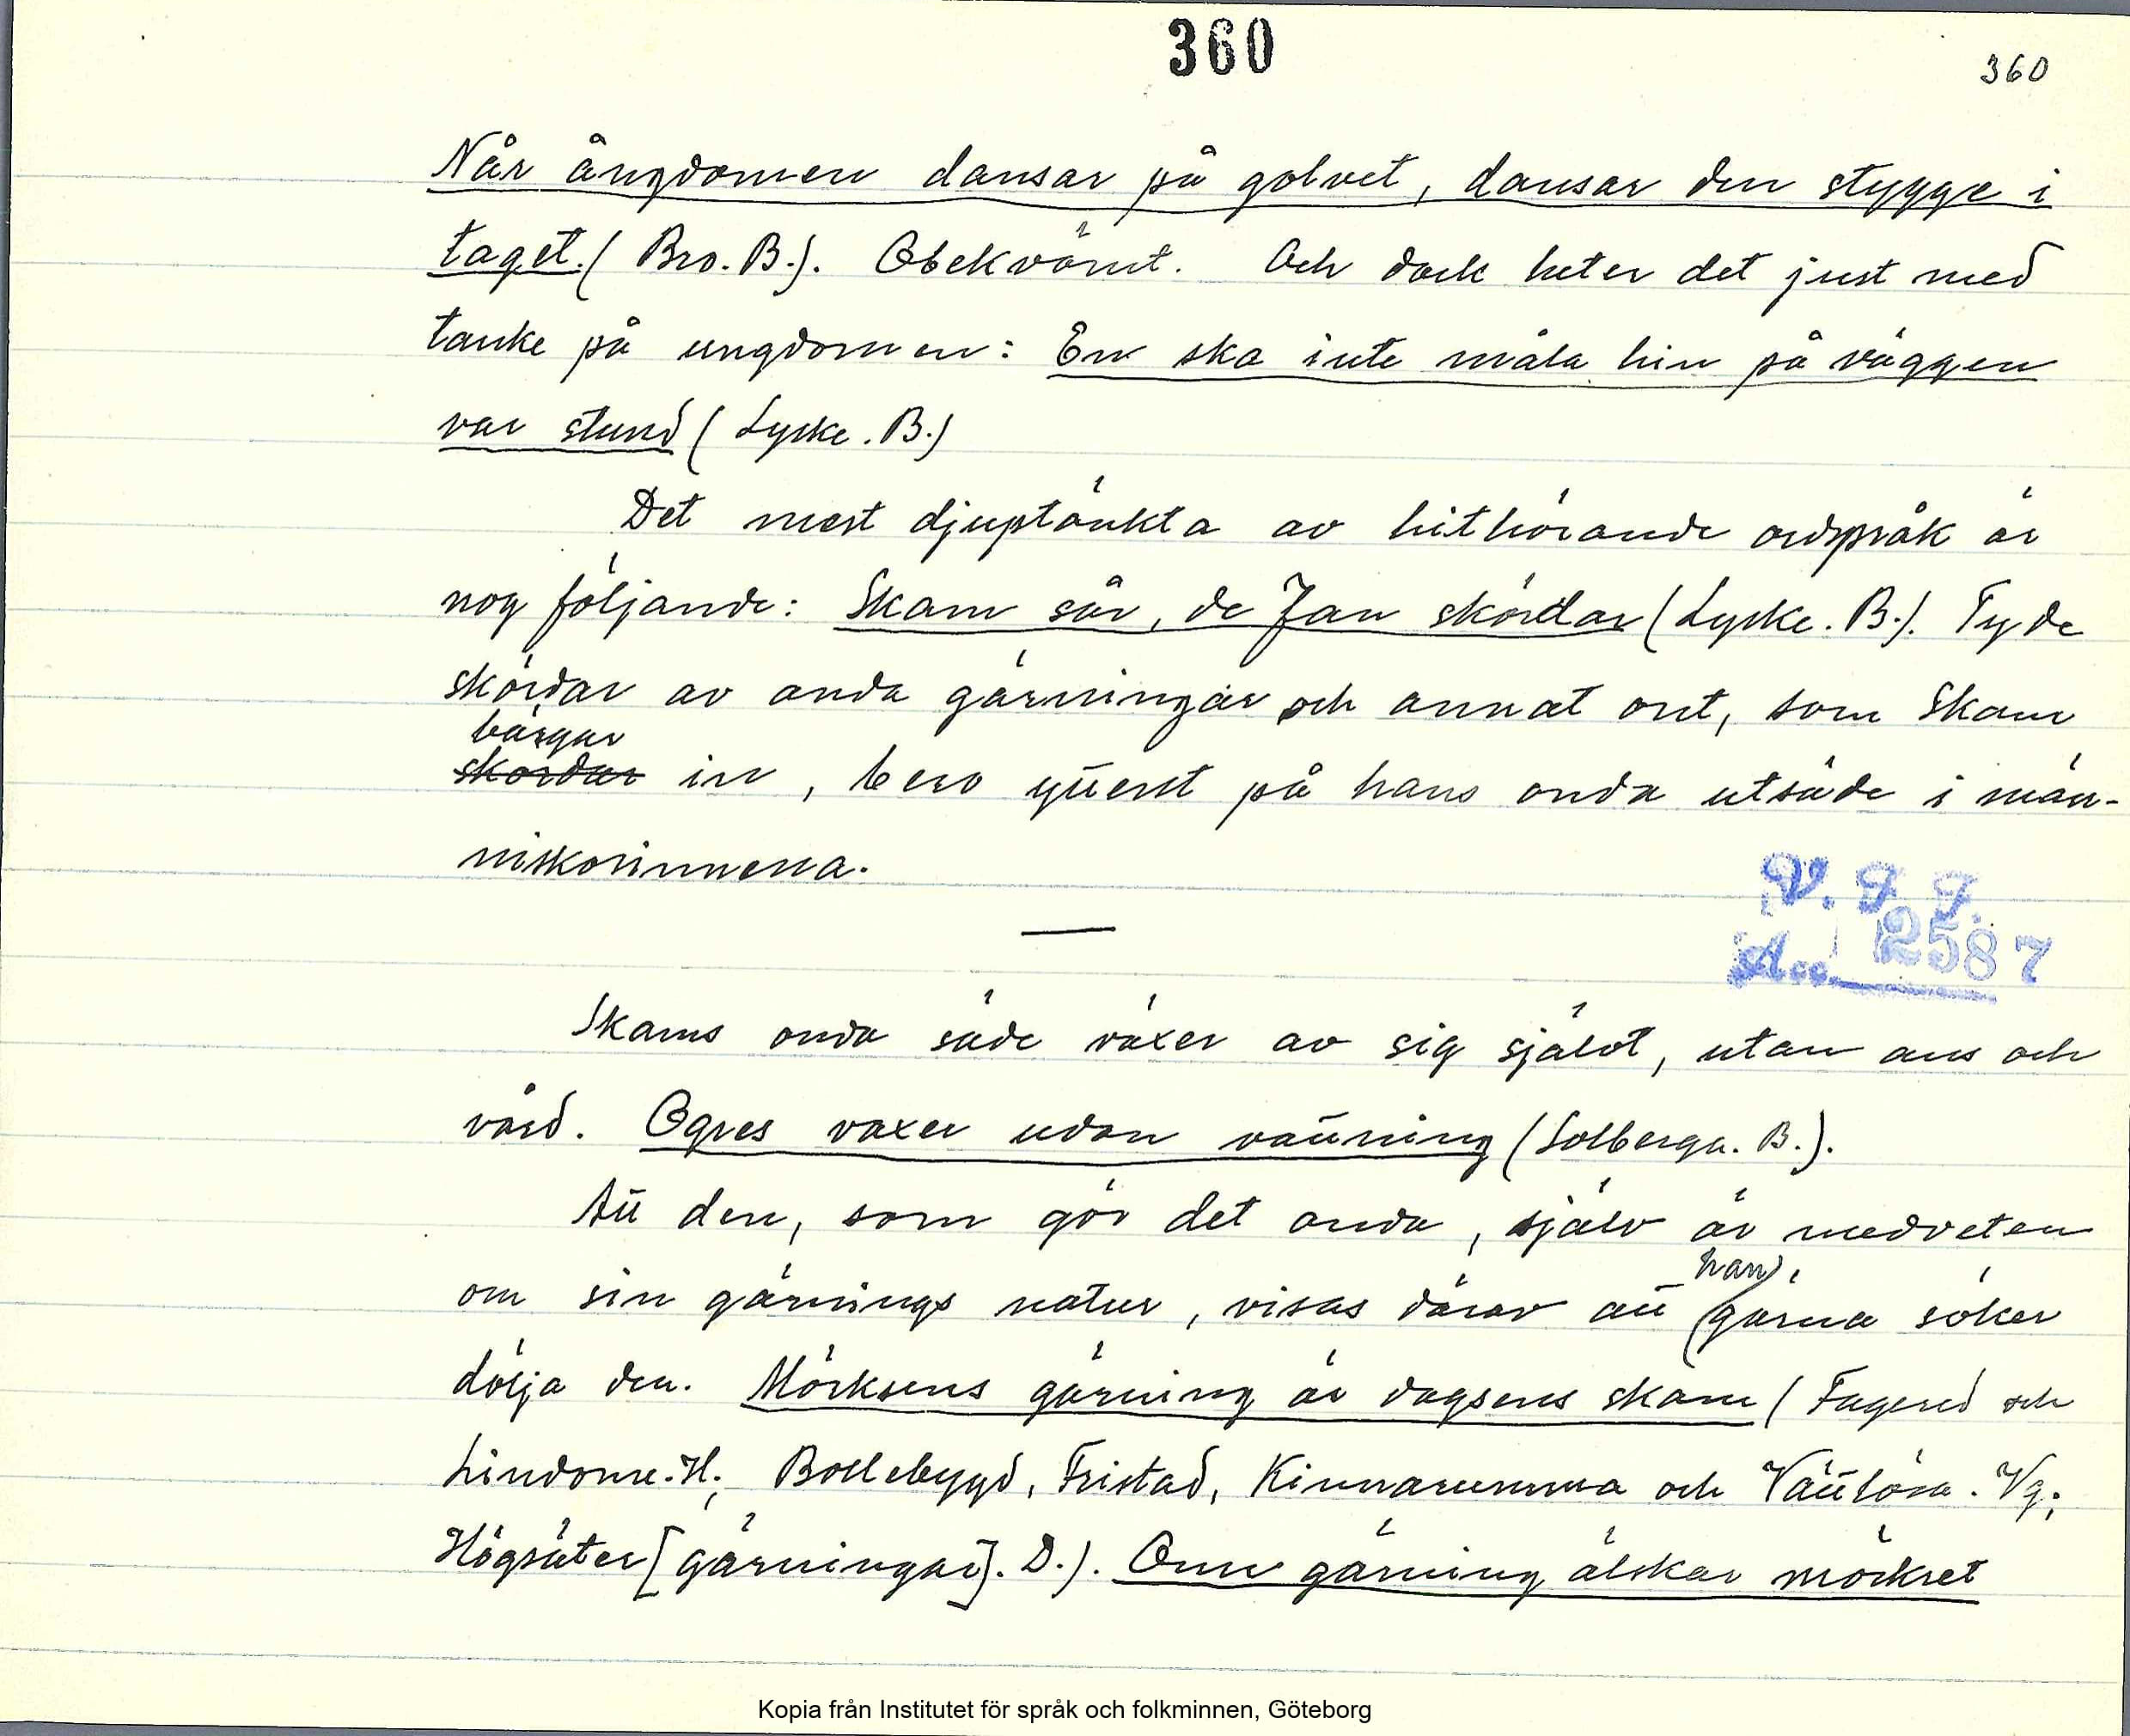 360
360
Når ångdomen dansar på golvet, dansar den stygge i
taget. (Bro. B.). Obekvämt. Och dock heter det just med
tanke på ungdomen: En ska inte måla hin på väggen
var stund (Lyske. B.)
Det mest djuptänkta av hithörande ordspråk är
nog följande: Skam sår, de Fan skördar (Lyske. B.). Ty de
skördar av onda gärningar och annat ont, som Skam
bärgar
skördar in, bero ytterst på hans onda utsäde i män-
niskosinnena.
V. F. F.
Acc. 2587
Skams onda säde växer av sig självt, utan ans och
vård. Ogres vaxer udan vattning (Solberga. B.).
Att den, som gör det onda, själv är medveten
han
om sin gärnings natur, visas därav att gärna söker
dölja den. Mörksens gärning är dagsens skam (Fagered och
Lindome. H.; Bollebygd, Fristad, Kinnarumma och Vättlösa. Vg.;
Högsäter [gärningar]. D.). Onn gärning älskar mörkret
Kopia från Institutet för språk och folkminnen, Göteborg